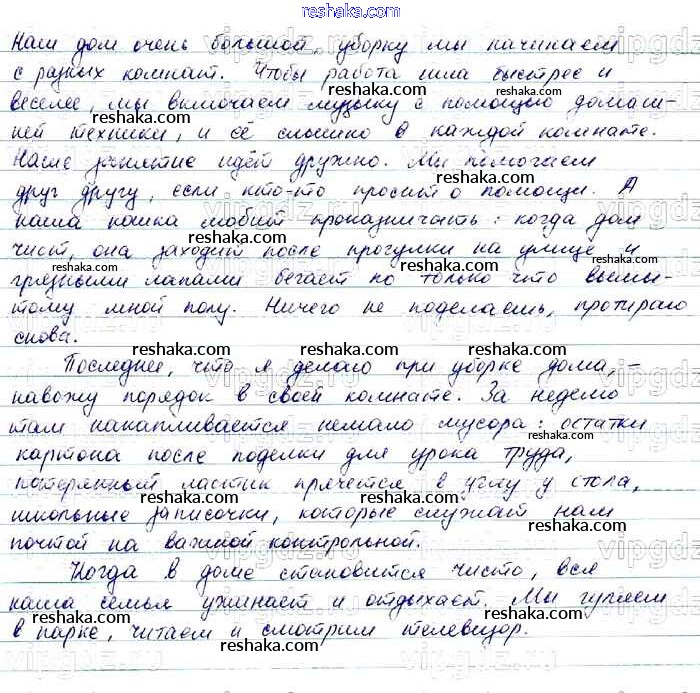 reshaka.com
Наш дом очень большой, уборку мы начинаем
с разных комнат. Чтобы работа шла быстрее и
веселее, мы включаем музыку с помощью домаш-
ней техники, и её слышно в каждой комнате.
Наше занятие идёт дружно. Мы помогаем
друг другу, если кто-то просит о помощи. А
наша кошка любит проказничать: когда дом
чист, она заходит после прогулки на улице и
грязными лапами бегает по только что вымы-
тому мной полу. Ничего не поделаешь, протираю
снова.
Последнее, что я делаю при уборке дома, –
навожу порядок в своей комнате. За неделю
там накапливается немало мусора: остатки
картона после поделки для урока труда,
потерянный ластик прячется в углу у стола,
школьные записочки, которые служат нам
почтой на важной контрольной.
Когда в доме становится чисто, вся
наша семья ужинает и отдыхает. Мы гуляем
в парке, читаем и смотрим телевизор.